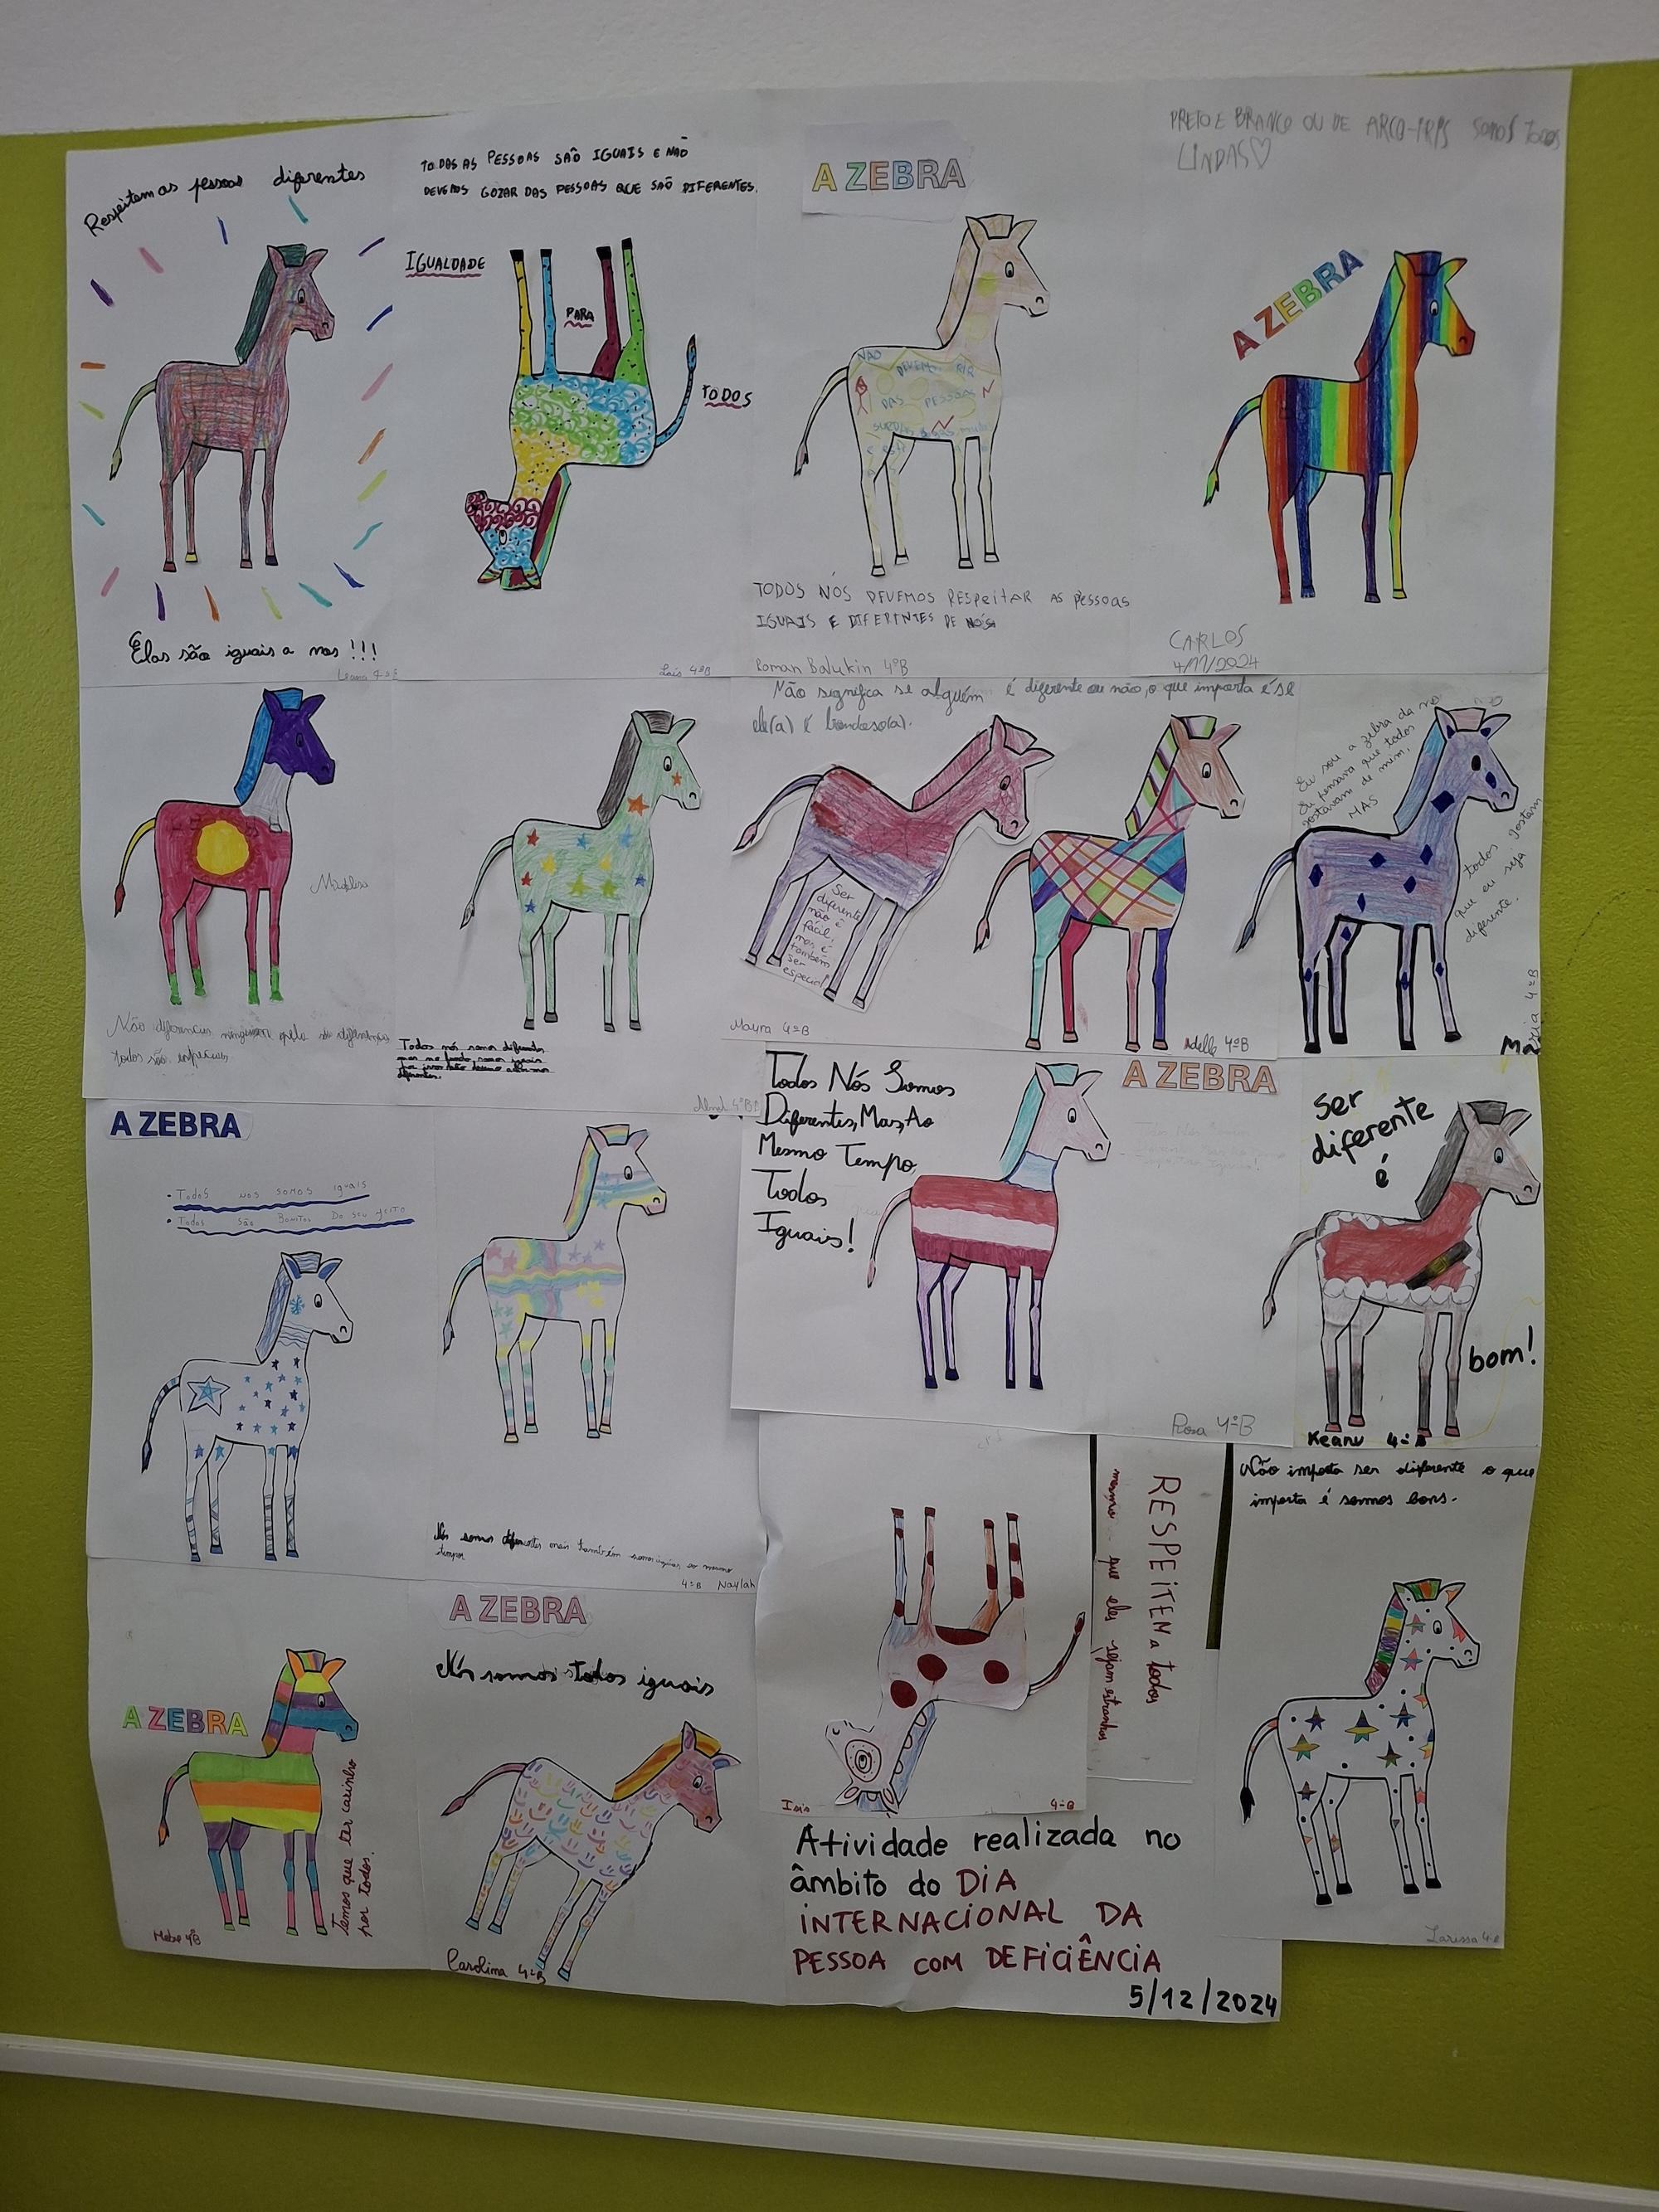 Respeitem as pessoas diferentes
Elas são iguais a nos !!!
Leana 4ºB
TODAS AS PESSOAS SAÕ IGUAIS E NÃO
DEVEMOS GOZAR DAS PESSOAS QUE SAÕ DIFERENTES.
IGUALDADE
PARA
TODOS
Laís 4ºB
A ZEBRA
NÃO
DEVEMOS RIR
DAS PESSOAS
TODOS NÓS DEVEMOS RESPEITAR AS PESSOAS
IGUAIS E DIFERENTES DE NÓS
Roman Balukin 4ºB
PRETO E BRANCO OU DE ARCO-IRIS SOMOS TODOS
LINDAS♡
A ZEBRA
CARLOS
4/11/2024
Não diferencies ninguem pela
todos são especiais
Todos nós somos diferentes
mas no fundo, somos iguais
por isso não
diferentes.
4ºB
Não significa se alguém é diferente ou não, o que importa é se
ele(a) é bondoso(a).
Ser
diferente
não é
fácil,
mas é
também
ser
especial!
Mayra 4ºB
Adelle 4ºB
Eu sou a zebra da
Eu pensava que todos
gostavam de mim,
MAS
todos gostam
que eu seja
diferente.
Maria 4ºB
A ZEBRA
• Todos nos somos iguais
• Todos são Bonitos Do seu jeito
Nós somos diferentes mais também somos iguais ao mesmo
tempo
4ºB Naylah
Todos Nós Somos
Diferentes, Mas, Ao
Mesmo Tempo,
Todos
Iguais!
A ZEBRA
Rosa 4ºB
ser
diferente
é
bom!
Keanu 4ºB
A ZEBRA
Temos que ter carinho
por todos.
4ºB
A ZEBRA
Nós somos todos iguais
Carolina 4ºB
Isis 4ºB
RESPEITEM a todos
mesmo que eles sejam estranhos
Não importa ser diferente o que
importa é sermos bons.
Larissa 4ºB
Atividade realizada no
âmbito do DIA
INTERNACIONAL DA
PESSOA COM DEFICIÊNCIA
5/12/2024